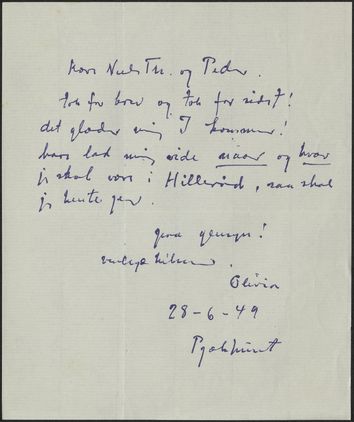 Kære Niels Th. og Peder.
tak for brev og tak for sidst!
det glæder mig I kommer!
bare lad mig vide naar og hvor
jeg skal være i Hillerød, saa skal
jeg hente jer.
paa gensyn!
venlige hilsner.
Olivia
28-6-49